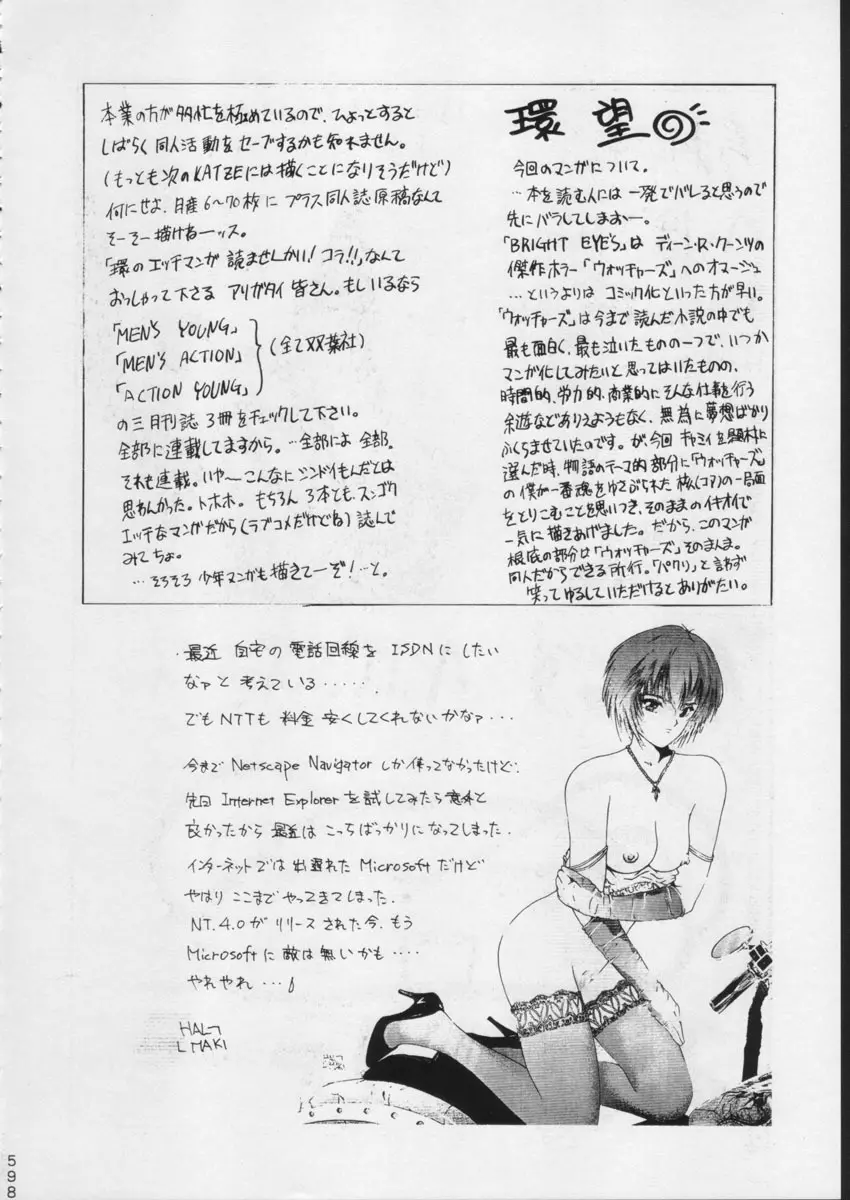 環 望
今回のマンガについて。
…本を読む人には一発でバレると思うので
先にバラしてしまおー。
「BRIGHT EYE'S」は ディーン・R・クーンツの
傑作ホラー「ウォッチャーズ」へのオマージュ
…というよりは コミック化といった方が早い。
「ウォッチャーズ」は今まで読んだ小説の中でも
最も面白く、最も泣いたものの一つで、いつか
マンガ化してみたいと思ってはいたものの、
時間的、労力的、商業的にそんな仕事を行う
余遊などありえようもなく、無為に夢想ばかり
ふくらませていたのです。が、今回 キャミィを題材に
選んだ時、物語のテーマ的部分に「ウォッチャーズ」
の僕が一番魂をゆさぶられた核(コア)の一局面
をとりこむことを思いつき、そのままのイキオイで
一気に描きあげました。だから、このマンガ
根底の部分は「ウォッチャーズ」そのまんま。
同人だからできる所行。「パクリ」と訳わず
笑ってゆるしていただけるとありがたい。
本業の方が多忙を極めているので、ひょっとすると
しばらく同人活動をセーブするかも知れません。
(もっとも次のKATZEには描くことになりそうだけど)
何にせよ、月産6〜70枚に プラス同人誌原稿なんて
そーそー描けねーッス。
「環のエッチマンガが読ませんかい! コラ!!」なんて
おっしゃって下さる アリガタイ皆さん。もしいるなら
「MEN'S YOUNG」
「MEN'S ACTION」 (全て双葉社)
「ACTION YOUNG」
の三月刊誌 3冊をチェックして下さい。
全部に連載してますから。…全部によ 全部。
それも連載。いや〜こんなにシンドイもんだとは
思わんかった。トホホ。もちろん3本とも、スンゴク
エッチなマンガだから(ラブコメだけどね) 読んで
みてちょ。
…そろそろ 少年マンガも描きてーぞ! …と。
・最近 自宅の 電話回線を ISDNに したい
なァと 考えている・・・・・.
でもNTTも 料金 安くしてくれないかなァ・・・
今まで Netscape Navigator しか使ってなかったけど、
先日 Internet Explorerを試してみたら意外と
良かったから 最近は こっちばっかりになってしまった.
インターネットでは 出遅れた Microsoftだけど
やはり ここまで やってきてしまった.
NT.4.0が リリースされた今、もう
Microsoftに 敵は無いかも・・・・
やれやれ・・・
MAKI
598